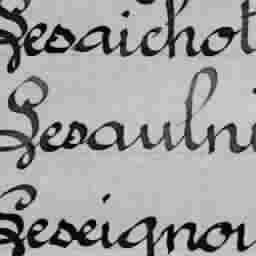 Lesaichot
Lesaulni
Leseignou